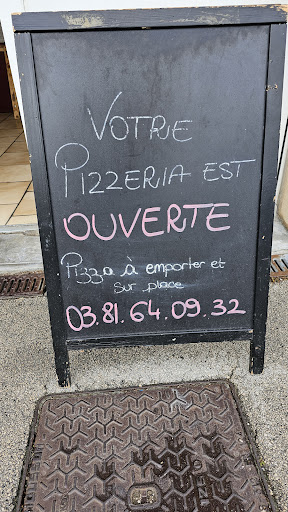 VOTRE
PIZZERIA EST
OUVERTE
Pizza à emporter et
sur place
03.81.64.09.32